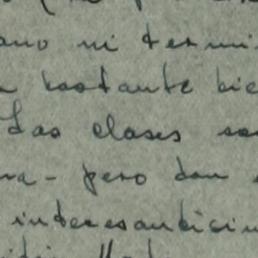 ano ni termi
bastante bie
Las clases so
ra - pero dan
interesantici